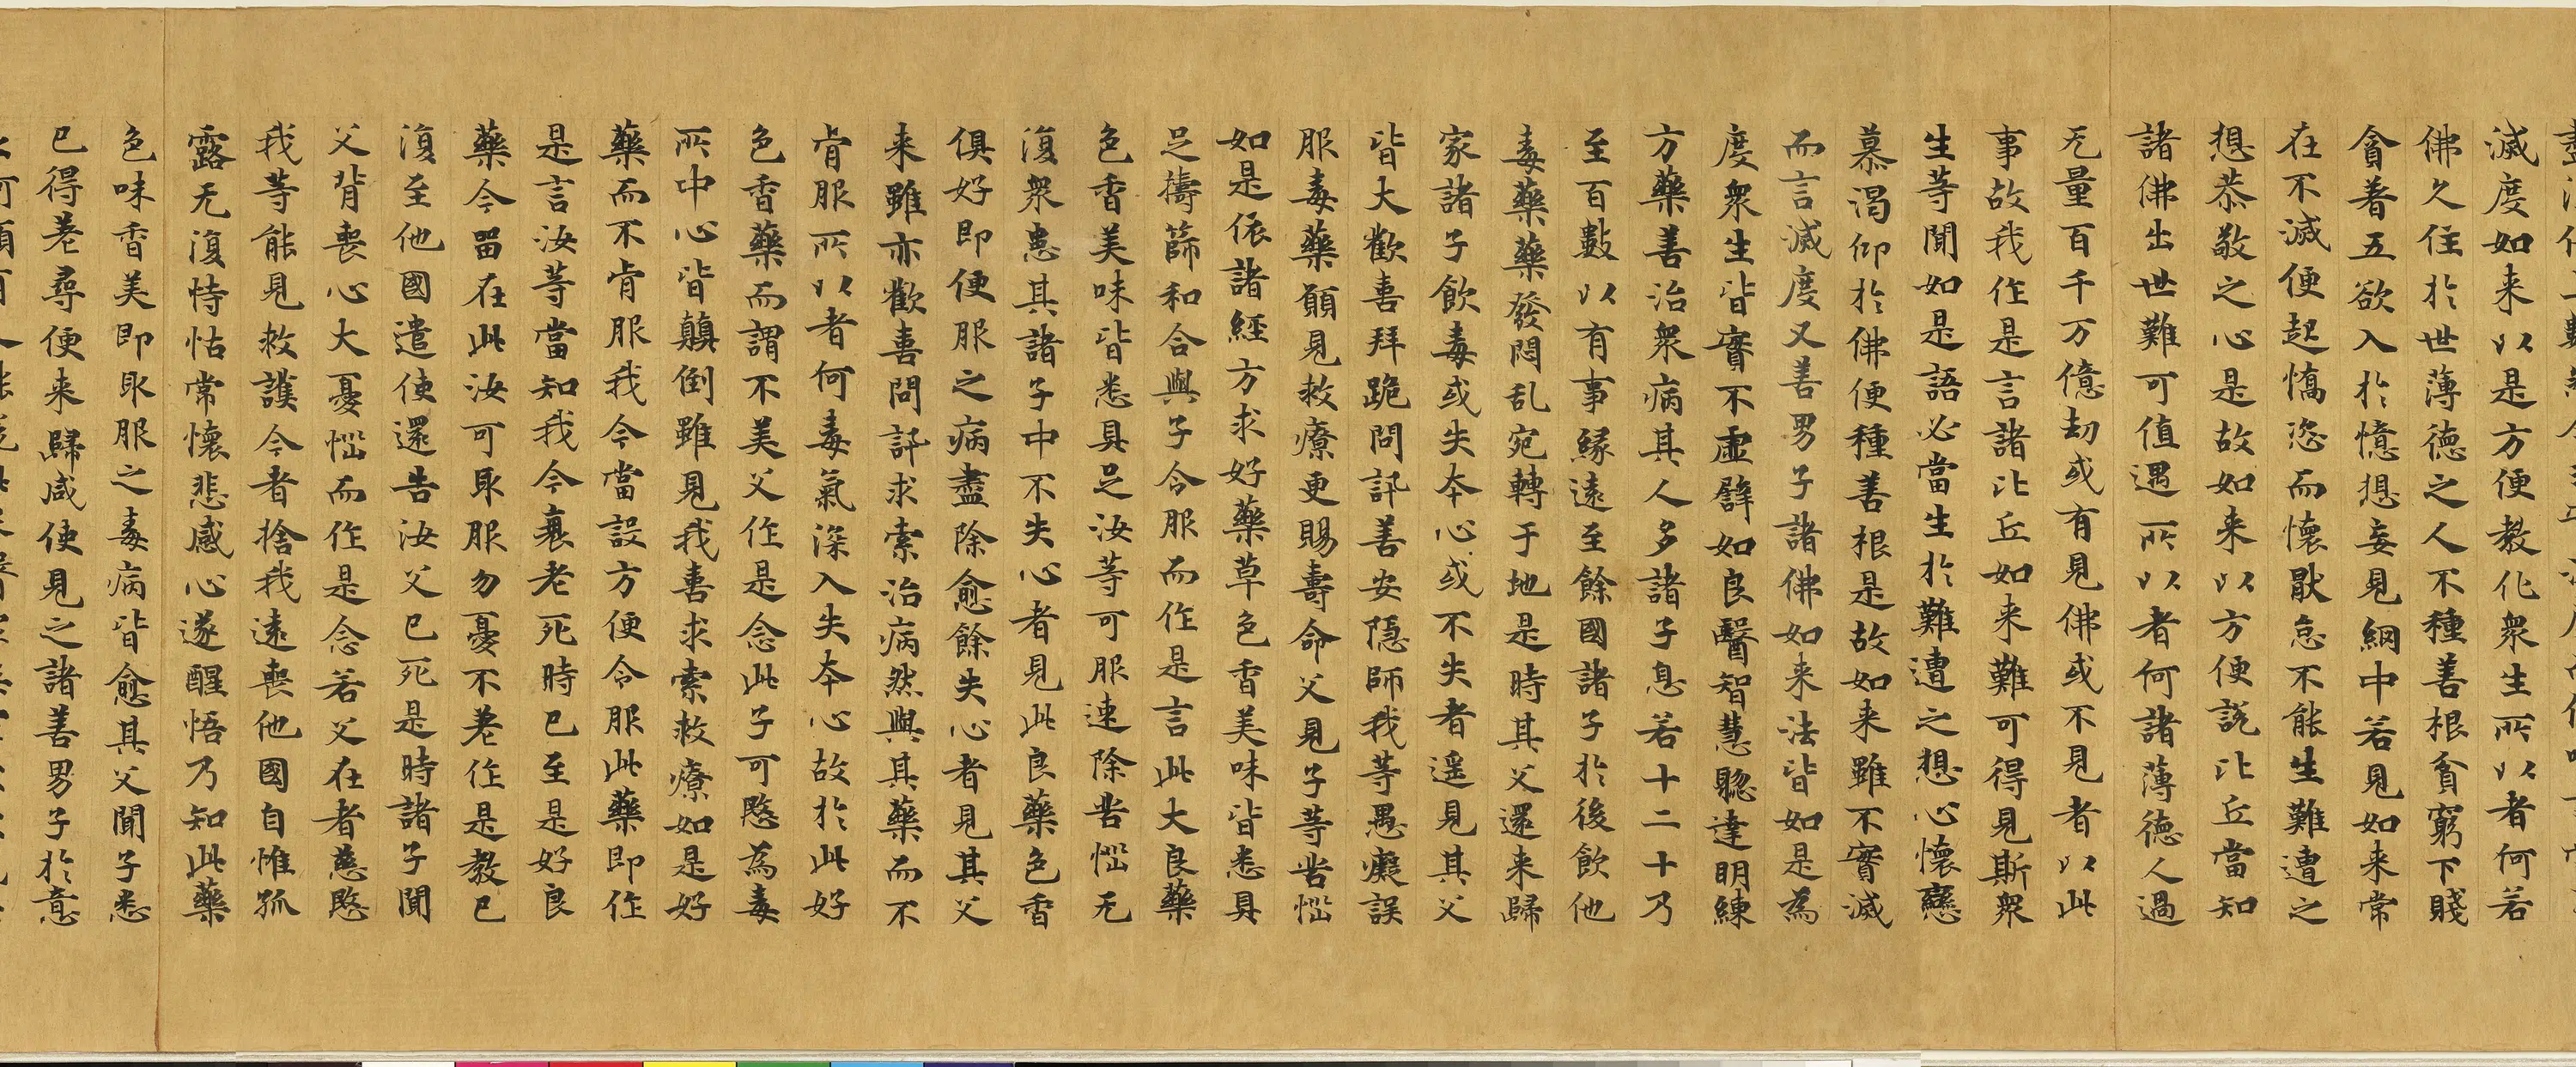 滅度如来以是方便教化衆生所以者何若
佛久住於世薄德之人不種善根貧窮下賤
貪著五欲入於憶想妄見網中若見如来常
在不滅便起憍恣而懷猒怠不能生難遭之
想恭敬之心是故如来以方便說比丘當知
諸佛出世難可值遇所以者何諸薄德人過
无量百千万億劫或有見佛或不見者以此
事故我作是言諸比丘如来難可得見斯衆
生等聞如是語必當生於難遭之想心懷戀
慕渴仰於佛便種善根是故如来雖不實滅
而言滅度又善男子諸佛如来法皆如是為
度衆生皆實不虛譬如良醫智慧聡達明練
方藥善治衆病其人多諸子息若十二十乃
至百數以有事緣遠至餘國諸子於後飲他
毒藥藥發悶乱宛轉于地是時其父還来歸
家諸子飲毒或失本心或不失者遥見其父
皆大歡喜拜跪問訊善安隐師我等愚癡誤
服毒藥願見救療更賜壽命父見子等苦惱
如是依諸經方求好藥草色香美味皆悉具
足擣篩和合與子令服而作是言此大良藥
色香美味皆悉具足汝等可服速除苦惱无
復衆患其諸子中不失心者見此良藥色香
俱好即便服之病盡除愈餘失心者見其父
来雖亦歡喜問訊求索治病然與其藥而不
肯服所以者何毒氣深入失本心故於此好
色香藥而謂不美父作是念此子可愍為毒
所中心皆顛倒雖見我喜求索救療如是好
藥而不肯服我今當設方便令服此藥即作
是言汝等當知我今衰老死時已至是好良
藥今留在此汝可取服勿憂不差作是教已
復至他國遣使還告汝父已死是時諸子聞
父背喪心大憂惱而作是念若父在者慈愍
我等能見救護今者捨我遠喪他國自惟孤
露无復恃怙常懷悲感心遂醒悟乃知此藥
色味香美即取服之毒病皆愈其父聞子悉
已得差尋便来歸咸使見之諸善男子於意